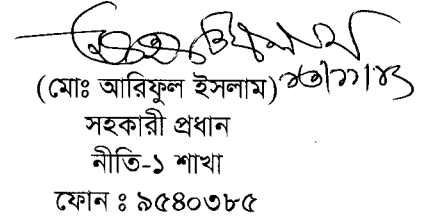 (মোঃ আরিফুল ইসলাম)
সহকারী প্রধান
নীতি-১ শাখা
ফোন ঃ ৯৫৪০৩৮৫